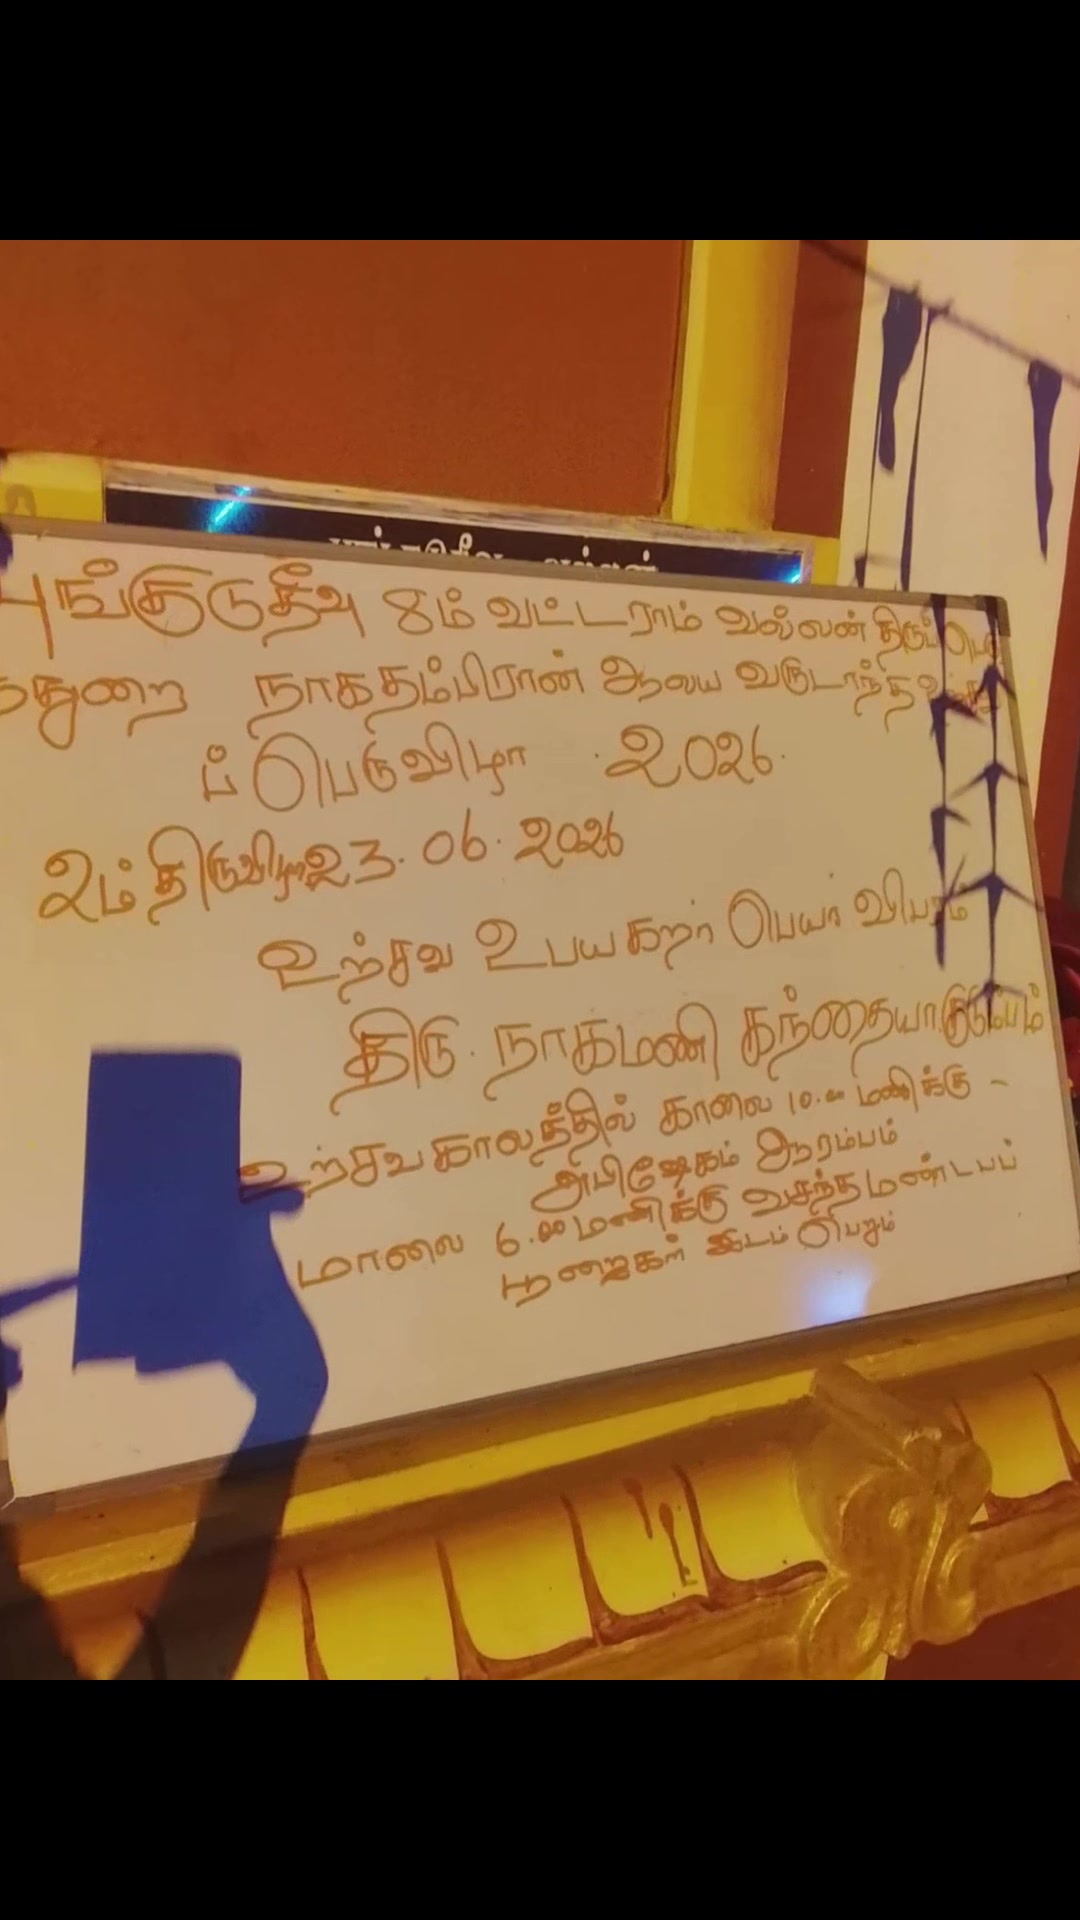 புங்குடுதீவு 8ம் வட்டராம் வல்லன் திருப்பெ
துறை நாகதம்பிரான் ஆலய வருடாந்த
ப் பெருவிழா . 2026.
2ம் திருவிழா 23. 06. 2026
உற்சவ உபயகறர் பெயர் விபரம்
திரு. நாகமணி கந்தையா குடும்பம்
உற்சவகாலத்தில் காலை 10.00 மணிக்கு -
அபிஷேகம் ஆரம்பம்
மாலை 6.00 மணிக்கு வசந்தமண்டபப்
பூஜைகள் இடம் பெறும்